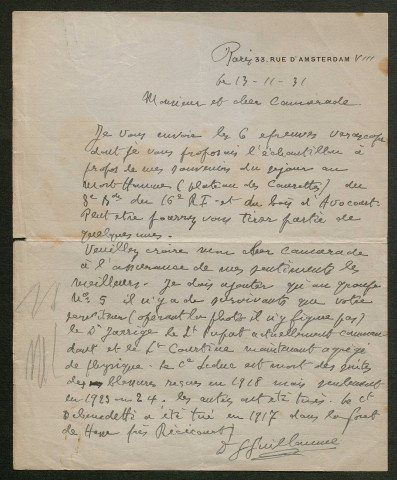 Paris 33. RUE D'AMSTERDAM VIII
le 13-11-31
Monsieur et cher Camarade
Je vous envoie les 6 epreuves verascope
dont je vous proposais l'échantillon à
propos de mes souvenirs du séjour au
Mort Homme (plateau des Caurettes) du
8e Bon du 16e R.I. et du bois d'Avocourt
Peut etre pourrez vous tirer partie de
quelques unes.
Veuillez croire mon cher Camarade
à l'assurance de mes sentiments les
meilleurs. Je dois ajouter qu'au groupe
No 5 il n'y a de survivants que votre
serviteur (operant la photo il n'y figure pas)
le Dr Jarrige le Lt Pupat actuellement comman
dant et le Lt Courtine maintenant agrégé
de physique. Le Ce Leduc est mort des suites
des blessures reçues en 1918 mais seulement
en 1923 ou 24. les autres ont été tués. Le Ct
Debenedetti a été tué en 1917 dans la foret
de Hesse près Récicourt)
Dr G Guillaume